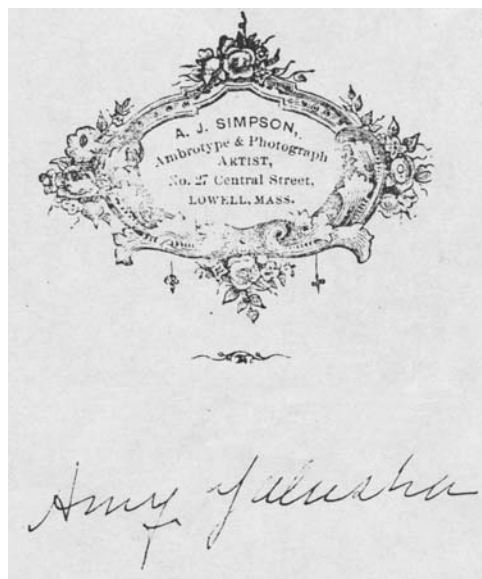 A. J. SIMPSON,
Ambrotype & Photograph
ARTIST,
No. 27 Central Street,
LOWELL, MASS.
Amy Galusha